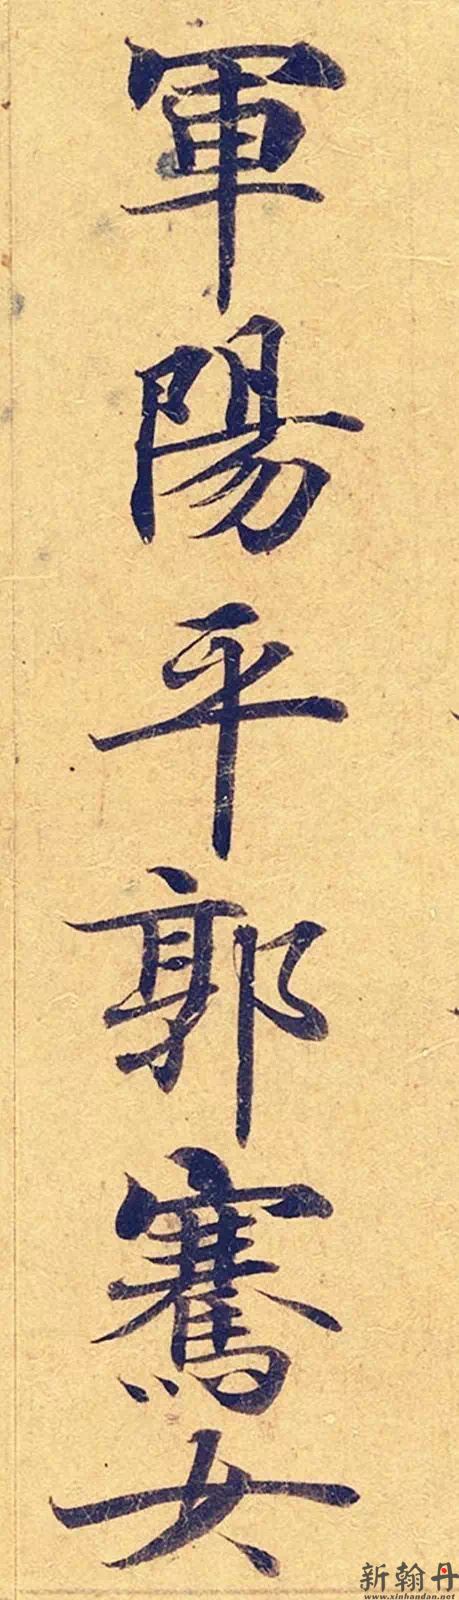 軍陽平郭騫女
新翰丹
www.xinhandan.net